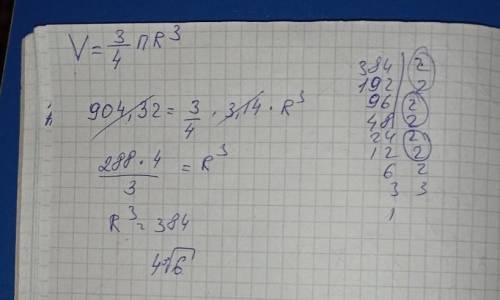 V = 3/4 ПR³
904,32 = 3/4 · 3,14 · R³
288·4/3 = R³
R³ = 384
4∛6
384 | 2
192 | 2
96 | 2
48 | 2
24 | 2
12 | 2
6 2
3 3
1